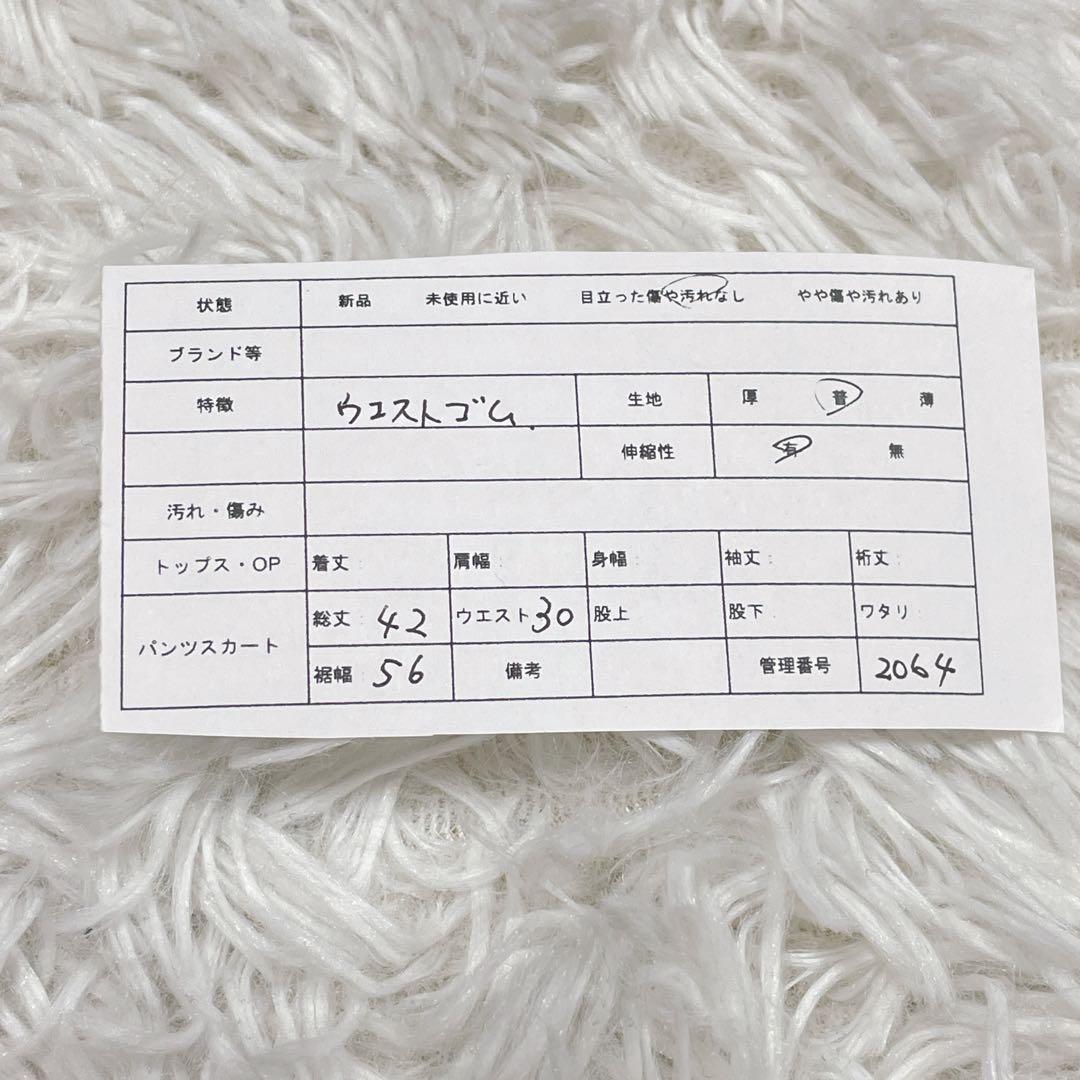 状態 新品 未使用に近い 目立った傷や汚れなし やや傷や汚れあり
ブランド等
特徴 ウエストゴム. 生地 厚 普 薄
伸縮性 有 無
汚れ・傷み
トップス・OP 着丈: 肩幅: 身幅: 袖丈: 裄丈:
パンツスカート 総丈: 42 ウエスト 30 股上 股下: ワタリ:
裾幅: 56 備考 管理番号 2064